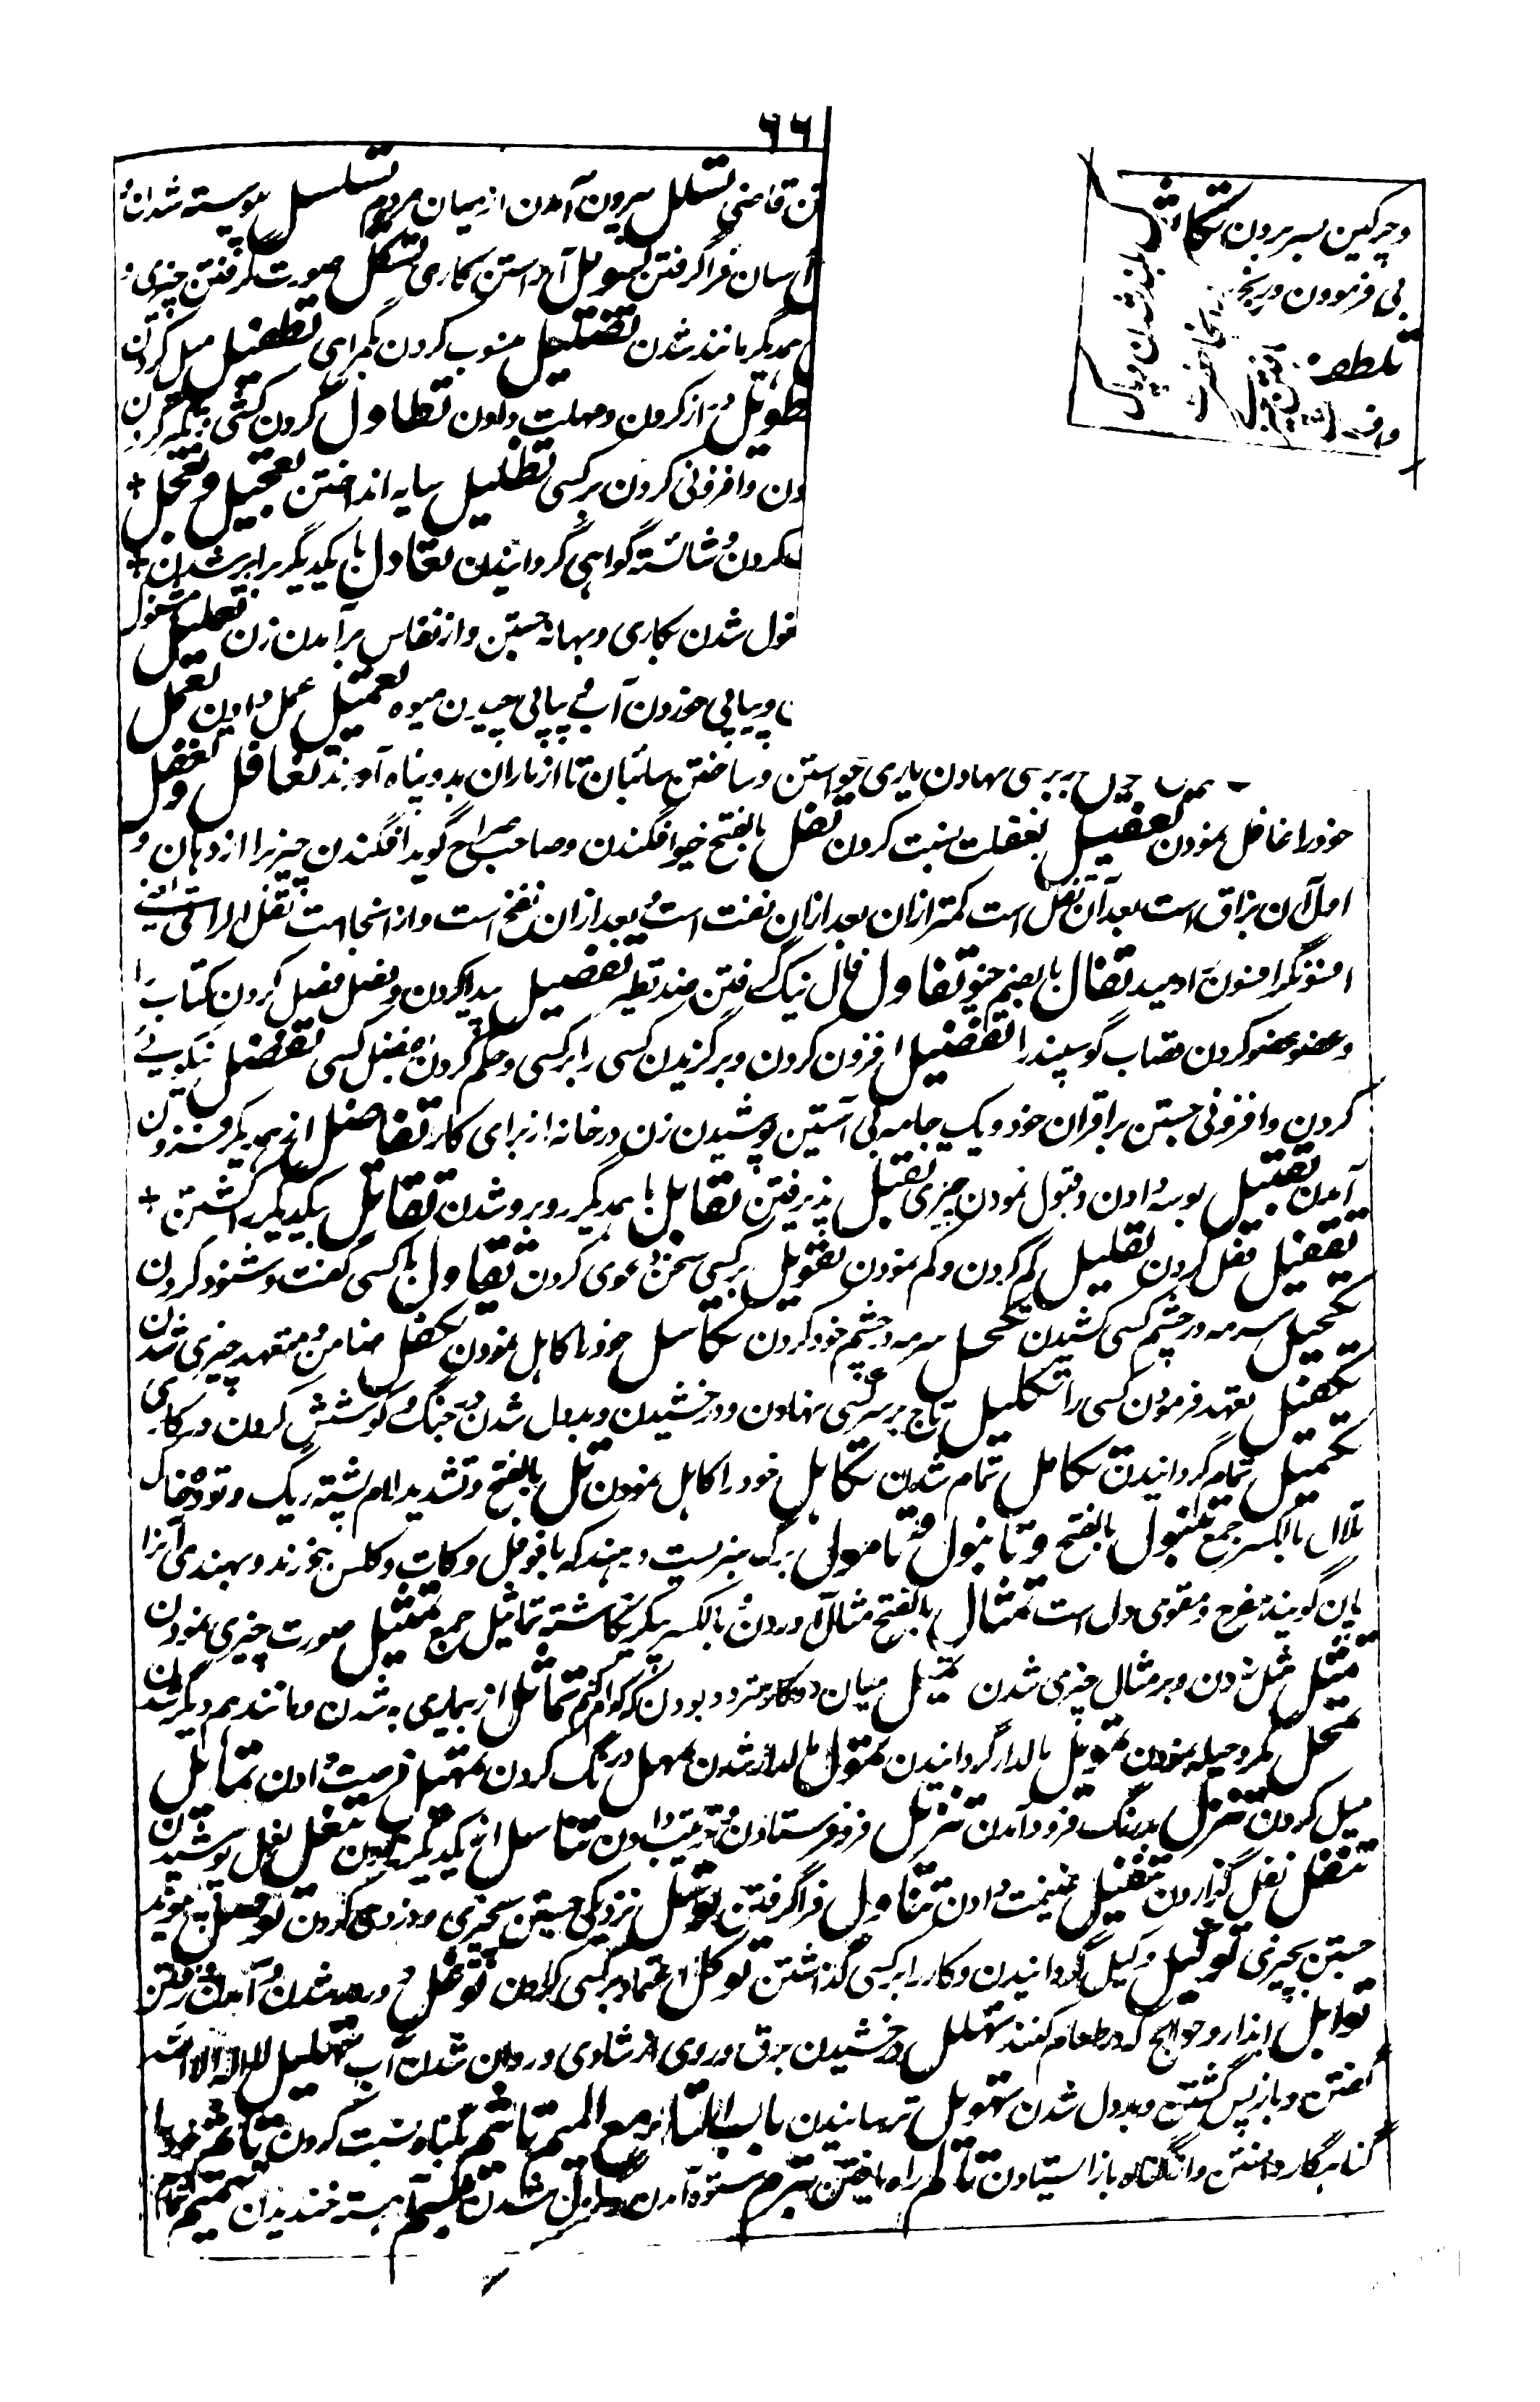 ۶۶
تن قاضی تسلل بیرون آمدن از میان مردم تسلسل پیوسته شدن
آسان فرا گرفتن تسویل آراستن بکاری تشکل صورت گرفتن چیزی و
همدیگر مانند شدن تضلیل منسوب کردن بگمراهی تطفیل میل کردن
تطویل دراز کردن و مهلت دادن تطاول گردن کشی
ون و افزونی کردن بر کسی تظلیل سایه انداختن تعجیل و تعجل +
کردن و شائسته گواهی گردانیدن تعادل با یکدیگر برابر شدن +
غول شدن بکاری و بهانه جستن و از نفاس برآمدن زن تعلیل مشغول
و پیاپی خوردن آب و پیاپی چیدن میوه تعمیل عمل دادن تعمل
بر کسی نهادن یاری خواستن و ساختن سائبان تا از باران بدو پناه آورند تغافل و تغفل
خود را غافل نمودن تغفیل بغفلت نسبت کردن تفل بالفتح خیو افگندن و صاحب صراح گوید افگندن چیز را از دهان و
اول آن بزاق است بعد آن تفل است کمتر از ان بعد از ان نفث است و بعد از ان نفخ است و از اینجا است تفل الراقی یعنی
افسونگر افسون دمید تفال بالضم خیو تفاول فال نیک گرفتن ضد تطیر تفصیل پیدا کردن و فصل فصل کردن کتاب را
و عضو عضو کردن قصاب گوسپند را تفضیل افزون کردن و برگزیدن کسی را بر کسی و حکم کردن بفضل کسی تفضل نیکویی
کردن و افزونی جستن بر اقران خود و یک جامه بی آستین پوشیدن زن در خانه از برای کار تفاضل از همدیگر افزون
آمدن تقبیل بوسه دادن و قبول نمودن چیزی تقبل پذیرفتن تقابل با همدیگر روبرو شدن تقاتل یکدیگر را کشتن +
تقفیل قفل کردن تقلیل کم کردن و کم نمودن تقویل بر کسی سخن دعوی کردن تقاول با کسی گفت و شنود کردن
تکحیل سرمه در چشم کسی کشیدن تکحل سرمه در چشم خود کردن تکاسل خود را کاهل نمودن تکفل ضامن و متعهد چیزی شدن
تکفیل تعهد فرمودن کسی را تکلیل تاج بر سر کسی نهادن و درخشیدن و بددل شدن در جنگ و کوشش کردن در کاری
تکمیل تمام گردانیدن تکامل تمام شدن تکاهل خود را کاهل نمودن تل بالفتح و تشدید لام پشته ریگ و توده خاک
تلال بالکسر جمع تنبول بالفتح و تانبول و تامول برگ سبزیست در هند که با فوفل و کات و کلس بخورند و بهندی آنرا
پان گویند مفرح و مقوی دل است تمثال بالفتح مثال آوردن و بالکسر پیکر نگاشته تماثیل جمع تمثیل صورت چیزی نمودن
تمثل مثل زدن و بر مثال چیزی شدن میان دو کار متردد بودن که کدام کنم تماثل از بیماری به شدن و مانند هم دیگر شدن
تمحل مکر و حیله نمودن تمویل مالدار گردانیدن تمول مالدار شدن تمهل درنگ کردن تمهیل فرصت دادن تمایل
میل کردن تنزل بدرنگ فرود آمدن تنزیل فرو فرستادن و ترتیب دادن تناسل از یکدیگر زادن تنعل نعل پوشیدن
تنفل نفل گذاردن تنفیل غنیمت دادن تناول فرا گرفتن توسل نزدیکی جستن بچیزی و دزدی کردن توصل پیوند
جستن بچیزی توکیل وکیل گردانیدن و کار را بر کسی گذاشتن توکل اعتماد بر کسی کردن توغل دور شدن و آمدن و رفتن
توابل ابزار و حوایج که در طعام کنند تهلل درخشیدن برق و روی از شادی و روان شدن آب تهلیل لا اله الا الله
گفتن و باز پس گشتن و بددل شدن تهویل ترسانیدن باب التاء مع المیم تاثیم بگناه نسبت کردن تاثم خود را
گناهگار دانستن و از گناه باز ایستادن تالم راه یافتن تبرم ستوه آمدن و ملول شدن تبسم آهسته خندیدن تتمیم تمام
و چرکین بسر بردن تکاثل
بی فرمودن و رنج
بلند شدن و پهل
تلطف